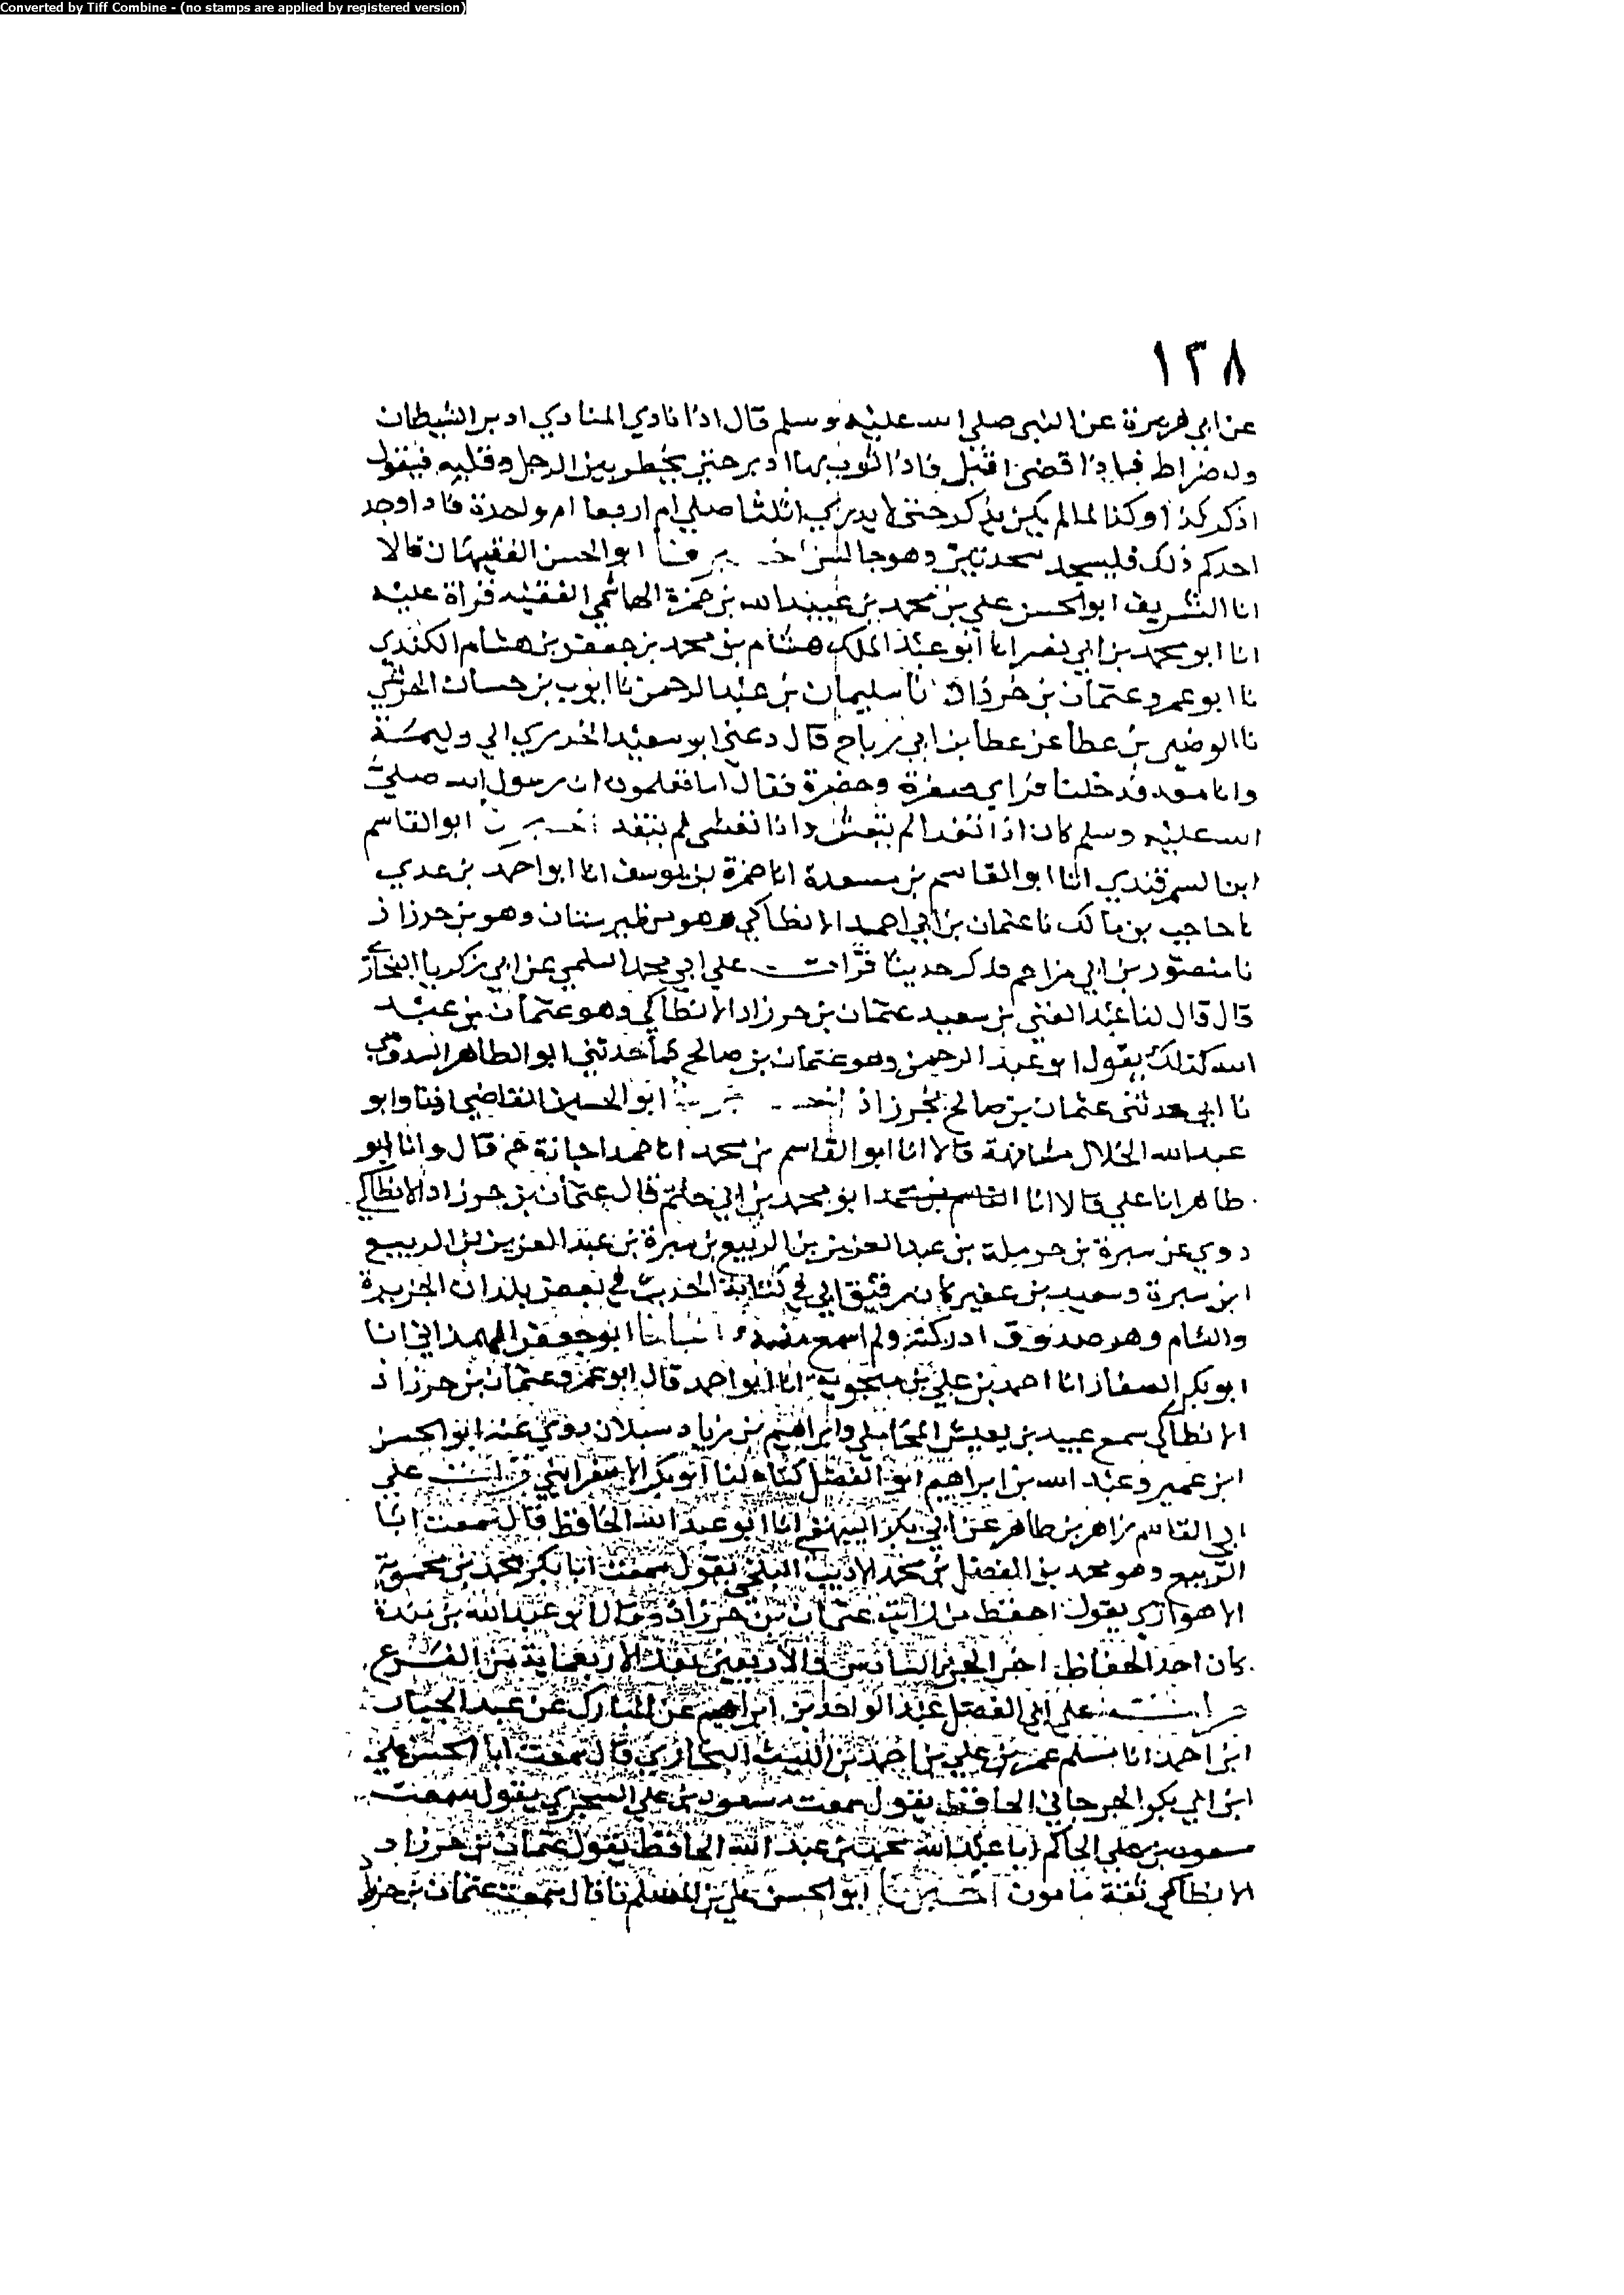 Converted by Tiff Combine - (no stamps are applied by registered version)
١٣٨
عن ابي هريرة عن النبي صلي الله عليه وسلم قال اذا نادي المنادي ادبر الشيطان
وله ضراط فاذا قضي اقبل فاذا ثوب بها ادبر حتي يخطر بين الرجل وقلبه فيقول
اذكر كذا وكذا لما لم يكن يذكر حتي لا يدري اثلثا صلي ام اربعا ام واحدة فاذا وجد
احدكم ذلك فليسجد سجدتين وهو جالس اخبرنا ابو الحسن الفقيهان قالا
انا الشريف ابو الحسن علي بن محمد بن عبيد الله بن حمزة الهاشمي الفقيه قراة عليه
انا ابو محمد بن ابي نصر انا ابو عبد الملك هشام بن محمد بن جعفر بن هشام الكندي
نا ابو عمرو عثمان بن خرزاذ نا سليمان بن عبد الرحمن نا ايوب بن حسان الجرشي
نا الوضين بن عطا عن عطا بن ابي رباح قال دعي ابو سعيد الخدري الي وليمة
وانا معه فدخلنا فراي صفرة وخضرة فقال اما تعلمون ان رسول الله صلي
الله عليه وسلم كان اذا تغدا لم يتعش واذا تعشي لم يتغد اخبرنا ابو القاسم
ابن السمرقندي انا ابو القاسم بن مسعدة انا حمزة بن يوسف انا ابو احمد بن عدي
نا حاجب بن مالك نا عثمان بن ابي احمد الانطاكي وهو من طبرستان وهو بن خرزاذ
نا منصور بن ابي مزاحم فذكر حديثا قرات علي ابي محمد السلمي عن ابي زكريا البخاري
قال قال لنا عبد الغني بن سعيد عثمان بن خرزاذ الانطاكي وهو عثمان بن عبد
الله كذلك يقول ابو عبد الرحمن وهو عثمان بن صالح كما حدثني ابو الطاهر السدوسي
نا ابي حدثني عثمان بن صالح بخرزاذ اخبرنا ابو الحسين القاضي اذنا وابو
عبد الله الخلال مشافهة قالا انا ابو القاسم بن محمد انا حمد اجازة ح قال وانا ابو
طاهر انا علي قالا انا ابو محمد بن ابي حاتم قال عثمان بن خرزاذ الانطاكي
روي عن سبرة بن حرملة بن عبد العزيز بن الربيع بن سبرة بن عبد العزيز بن الربيع
ابن سبرة وسعيد بن عفير كان رفيق ابي في كتابة الحديث في بعض بلدان الجزيرة
والشام وهو صدوق ادركته ولم اسمع منه انبانا ابو جعفر الهمذاني انا
ابو بكر الصفار انا احمد بن علي بن منجوية انا ابو احمد قال ابو عمرو عثمان بن خرزاذ
الانطاكي سمع عبيد بن يعيش المحاملي وابراهيم بن زياد سبلان روي عنه ابو الحسن
ابن عمير وعبد الله بن ابراهيم ابو الفضل كناه لنا ابو بكر الاسفرايني قرات علي
ابي القاسم زاهر بن طاهر عن ابي بكر البيهقي انا ابو عبد الله الحافظ قال سمعت ابا
الربيع وهو محمد بن الفضل بن محمد الاديب البلخي يقول سمعت ابا بكر محمد بن محموية
الاهوازي يقول احفظ من رايت عثمان بن خرزاذ وقال ابو عبد الله بن مندة
كان احد الحفاظ اخر الجزو السادس والاربعين بعد الاربعماية من الفرع
قرات علي ابي الفضل عبد الواحد بن ابراهيم عن المبارك عن عبد الجبار
ابن احمد انا مسلم عمر بن علي بن احمد بن الليث البخاري قال سمعت ابا الحسن علي
ابن ابي بكر الجرجاني الحافظ يقول سمعت مسعود بن علي السجزي يقول سمعت
مسعود بن علي الحاكم ابا عبد الله محمد بن عبد الله الحافظ يقول عثمان بن خرزاذ
الانطاكي ثقة مامون اخبرنا ابو الحسن علي بن المسلم نا قال سمعت عثمان بن خرزاد